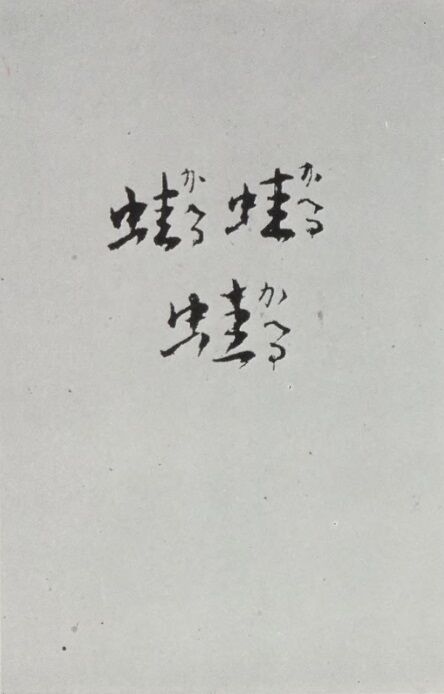 蛙 蛙
かへる かへる
蛙
かへる